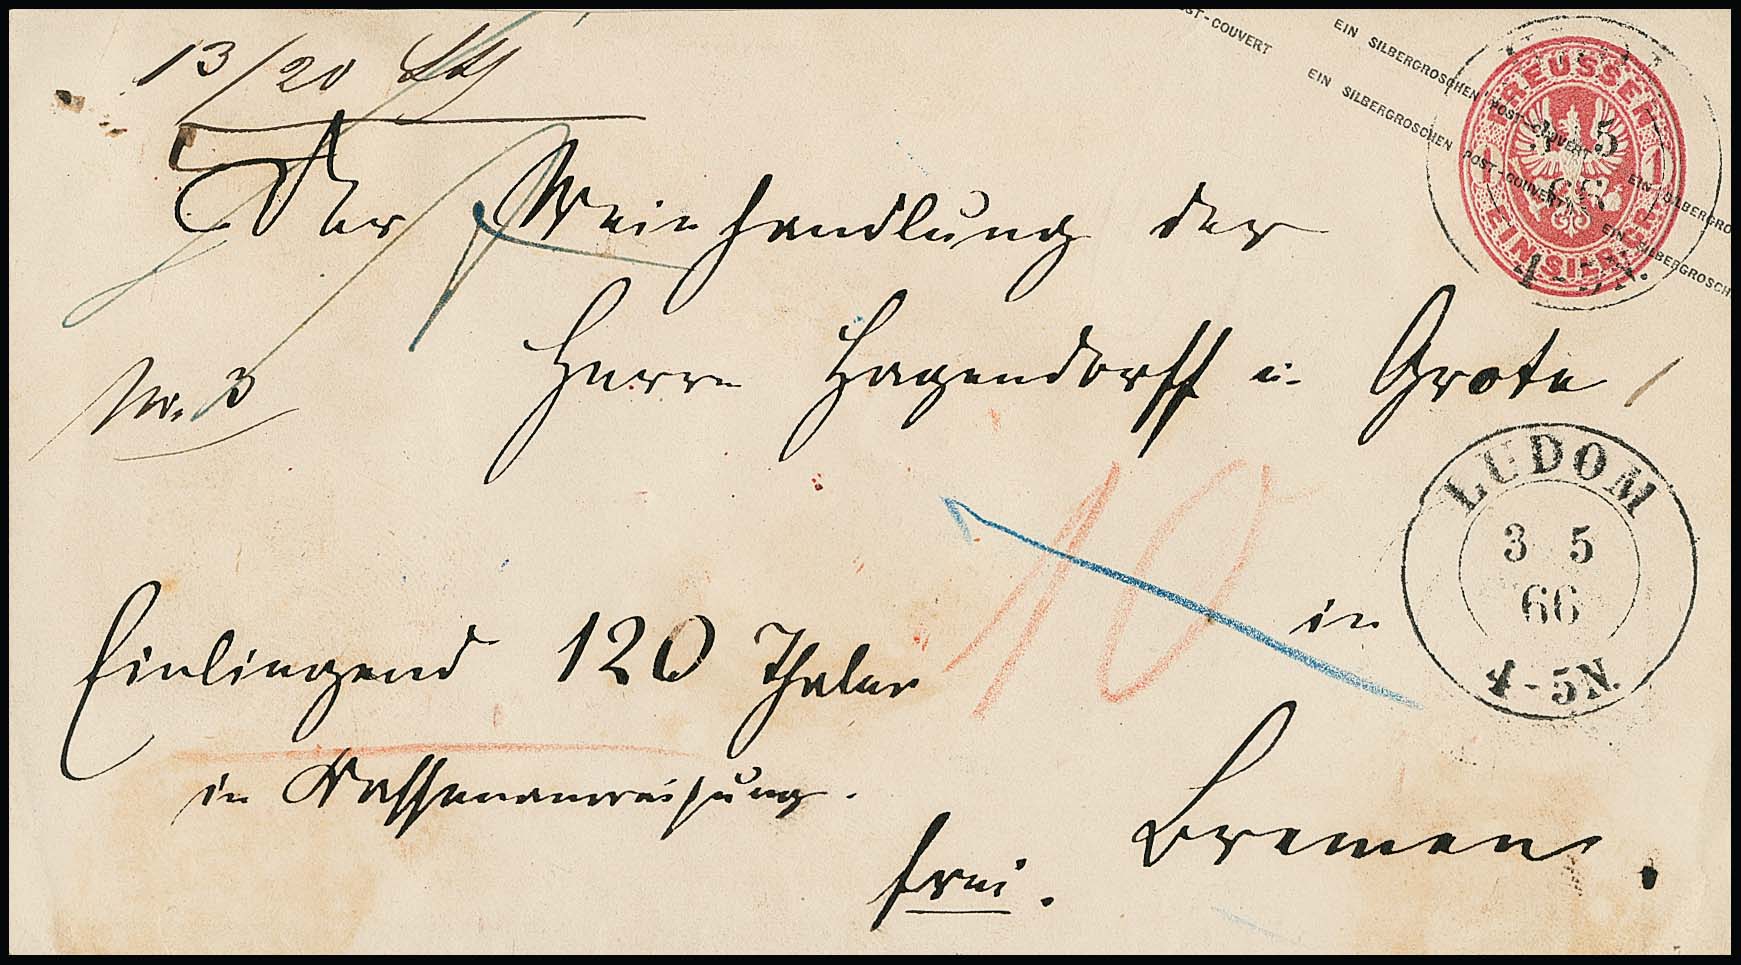 13/20 Lth
POST-COUVERT
EIN SILBERGROSCHEN POST-COUVERT
EIN SILBERGROSCHEN POST-COUVERT
EIN SILBERGROSCH
EIN SILBERGROSCH
PREUSSEN
1 1
EIN SILBERGR.
3 5
66
4-5N.
Der Weinhandlung der
Herren Hagendorff u. Grote
No. 3
LUDOM
3 5
66
4-5N.
10
in
Einliegend 120 Thaler
in Kassenanweisung.
Bremen.
frei.